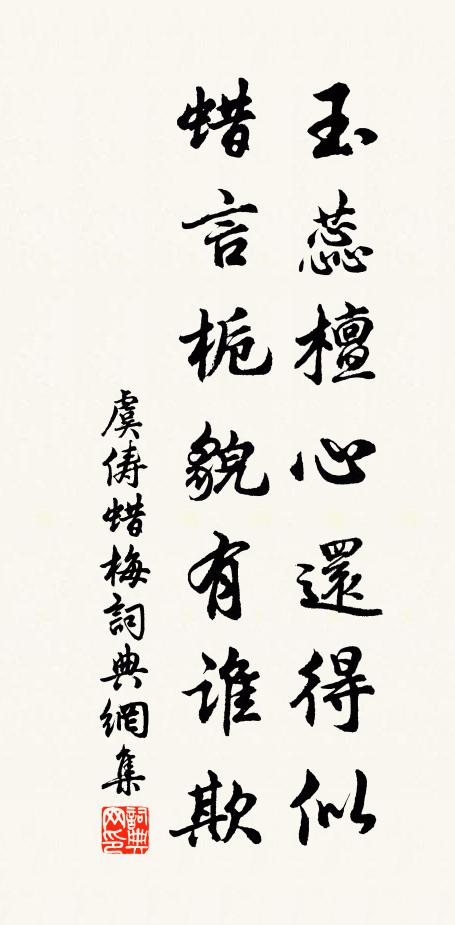 玉蕊檀心還得似
蜡言栀貌有誰欺
虞俦蜡梅詞典網集
詞典网印